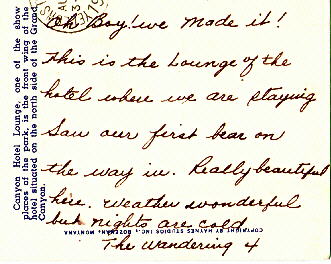 Oh Boy! we made it!
This is the Lounge of the
hotel where we are staying
Saw our first bear on
the way in. Really beautiful
here. Weather wonderful
but nights are cold
The Wandering 4
Canyon Hotel Lounge, one of the show
places of the park, is the front wing of the
hotel situated on the north side of the Grand
Canyon.
COPYRIGHT BY HAYNES STUDIOS INC., BOZEMAN, MONTANA